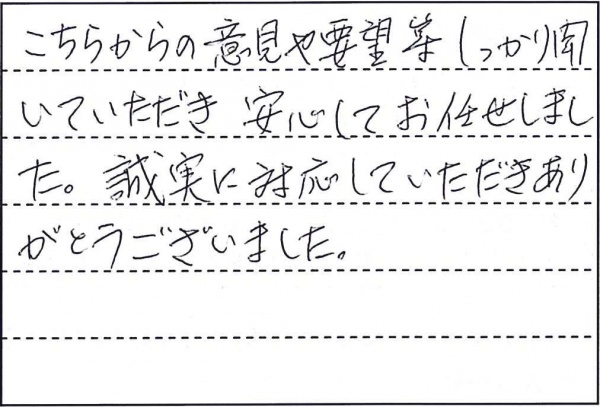 こちらからの意見や要望等しっかり聞
いていただき 安心してお任せしまし
た。誠実に対応していただきあり
がとうございました。